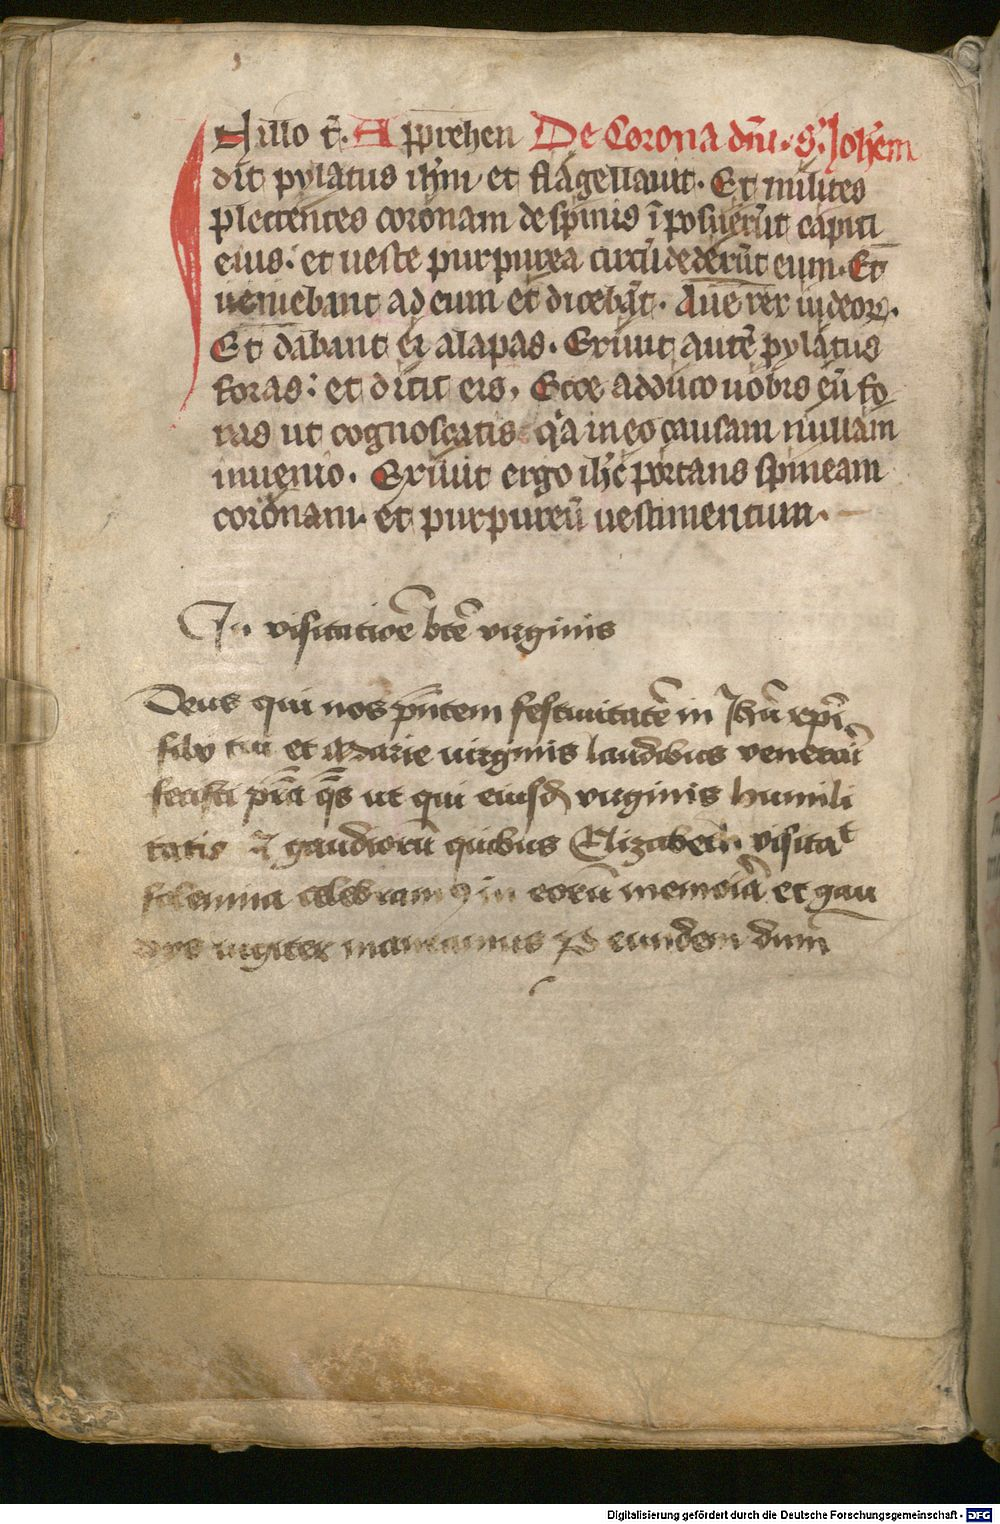 In illo t̄. Apprehen De Corona dn̄i. s. Joh'em
dit pylatus ih̄m et flagellauit. Et milites
plectentes coronam de spinis īposuerūt capiti
eius: et ueste purpurea circūdederūt eum. Et
ueniebant ad eum et dicebāt. Aue rex iudeoꝝ.
Et dabant ei alapas. Exiuit autē pylatus
foras: et dicit eis, Ecce adduco uobis eū fo
ras ut cognoscatis q'a in eo causam nullam
inuenio. Exiuit ergo ih̄c portans spineam
coronam. et purpureū uestimentum.
In visitatiōe btē virginis
Deus qui nos pn̄tem festiuitatē in Jhū xp̄i
filij tui et Marie uirginis laudibus venerari
fecisti pn̄a q̄s ut qui eiusd virginis humili
tatis ⁊ gaudiorū quibus Elizabeth visitat
solemnia celebramꝯ in eorū memoriā et gau
dijs iugiter maneamus P eundem dnm̄
Digitalisierung gefördert durch die Deutsche Forschungsgemeinschaft - DFG